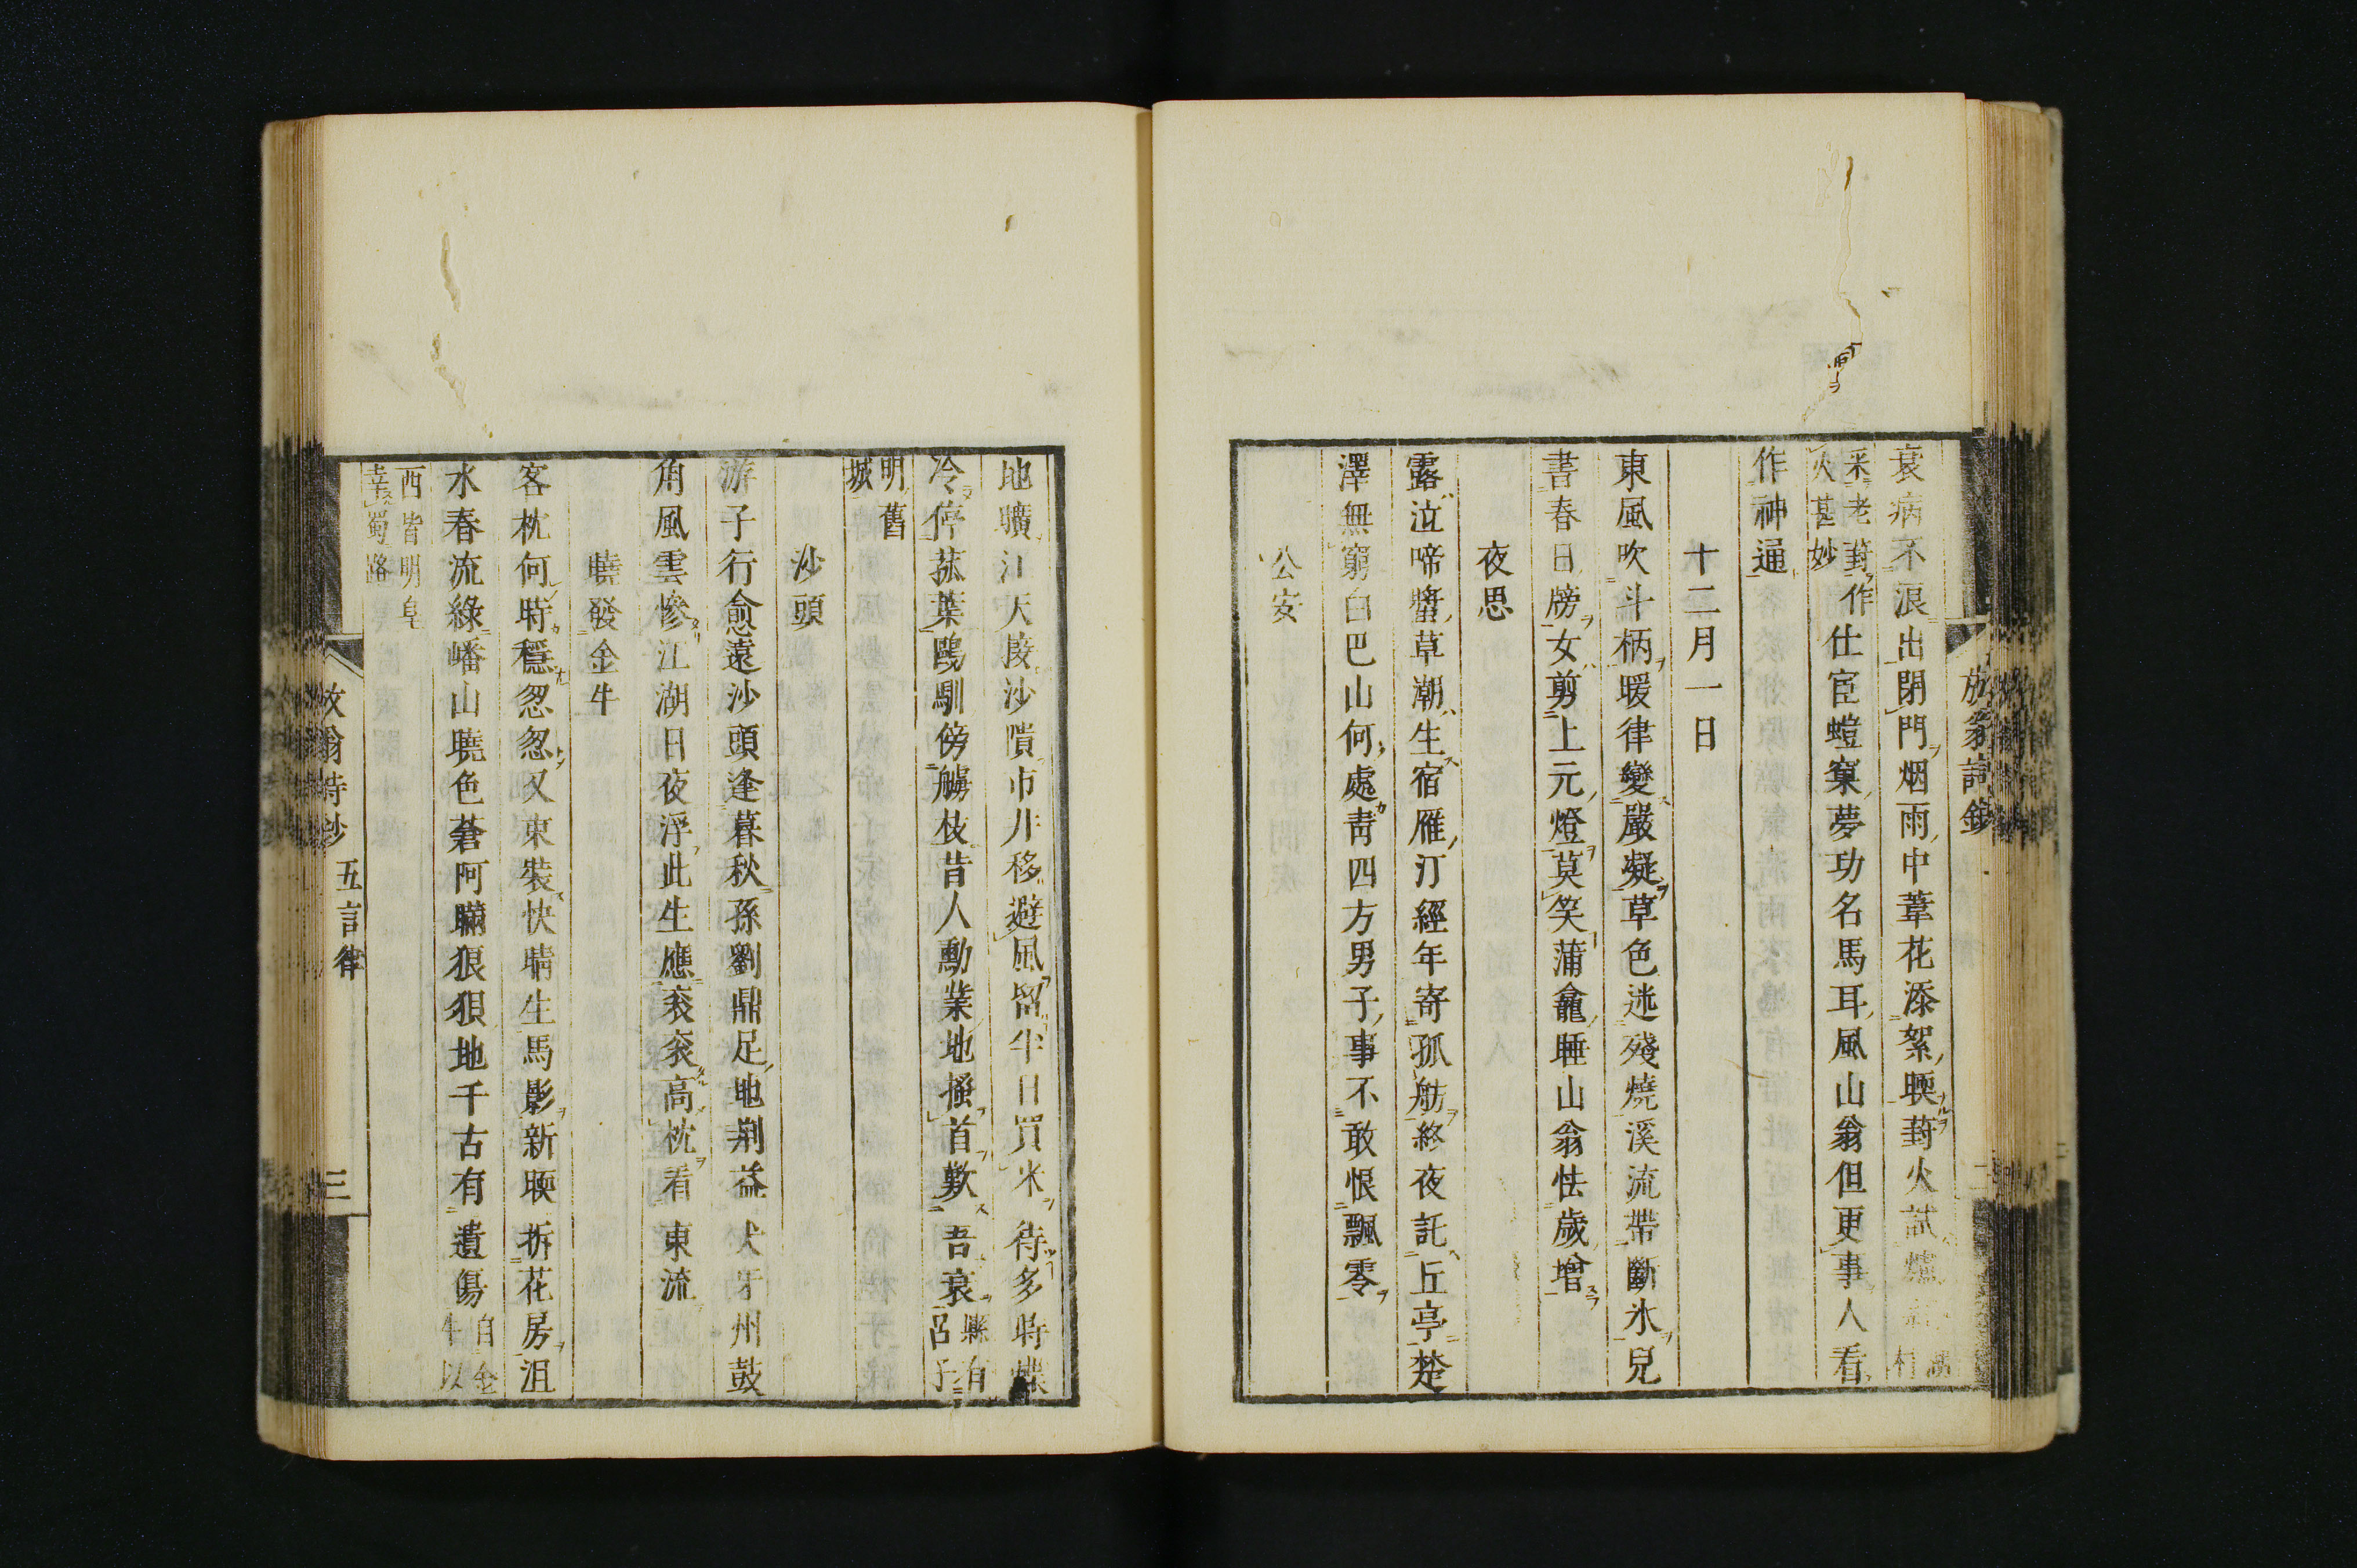 衰病不浪出閉門烟雨中葦花添絮㬉葑火試爐
采老葑作
火甚妙
仕宦螘窠夢功名馬耳風山翁但更事人看
作神通
十二月一日
東風吹斗柄暖律變嚴凝草色迷殘燒溪流帶斷氷兒
書春日牓女剪上元燈莫笑蒲龕睡山翁怯歲增
夜思
露泣啼螿草潮生宿雁汀經年寄孤舫終夜託丘亭楚
澤無窮白巴山何處青四方男子事不敢恨飄零
公安
地曠江天接沙隤市井移避風留半日買米待多時蝶
冷停菰葉鷗馴傍艣枝昔人勳業地搔首歎吾衰
縣有
呂子
明舊
城
沙頭
游子行愈遠沙頭逢暮秋孫劉鼎足地荆益犬牙州鼓
角風雲慘江湖日夜浮此生應衮衮高枕看東流
曉發金牛
客枕何時穩忽忽又束裝快晴生馬影新㬉拆花房沮
水春流綠嶓山曉色蒼阿瞞狼狽地千古有遺傷
自金
牛以
西皆明皇
幸蜀路
放翁詩鈔 五言律 三